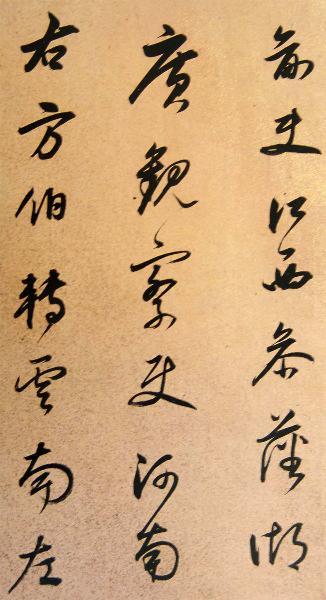 前史江西參藩湖
廣觀察史河南
右方伯轉雲南左